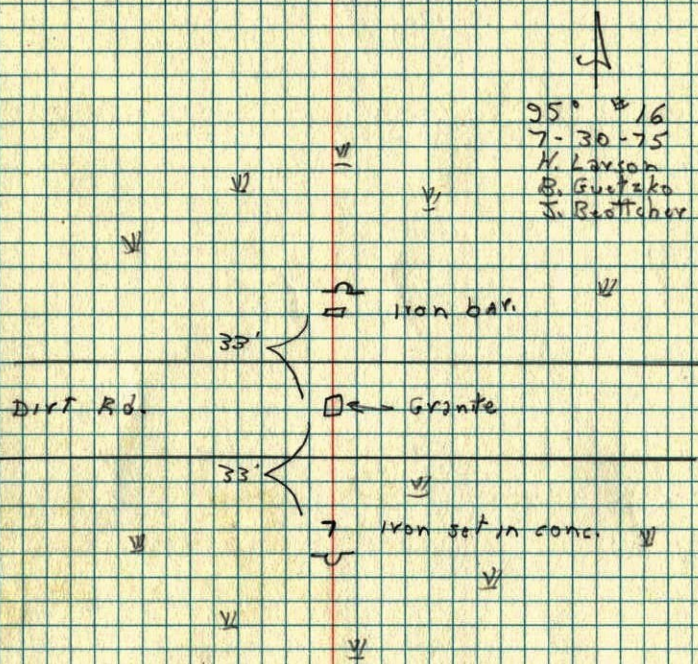 95° #16
7-30-75
H. Larson
B. Guetzko
J. Brottcher
Iron bar.
33'
Dirt Rd.
Granite
33'
7 Iron set in conc.